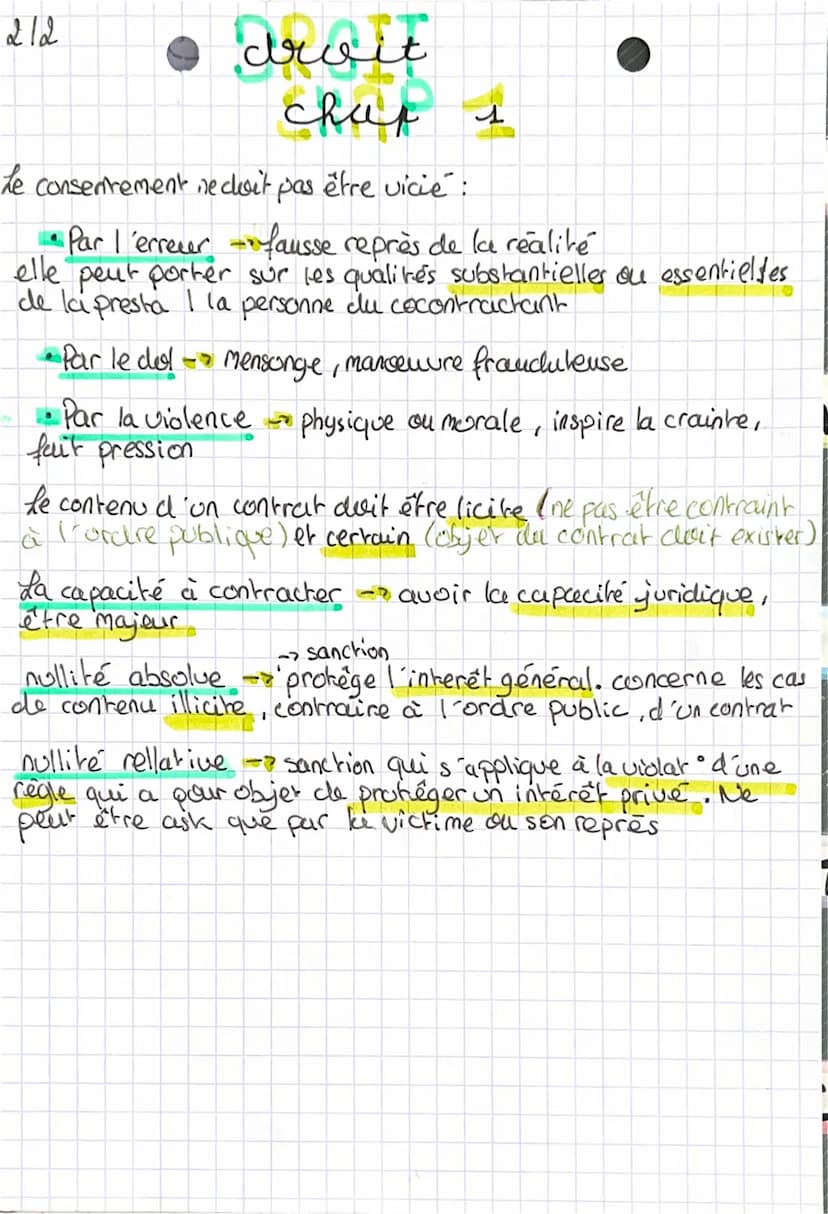 2/2
droit
chap 1
Le consentement ne doit pas être vicié :
• Par l'erreur → fausse reprès de la réalité
elle peut porter sur les qualités substantielles ou essentielles
de la presta / la personne du cocontractant
• Par le dol → mensonge, manœuvre frauduleuse
• Par la violence → physique ou morale, inspire la crainte,
fait pression
Le contenu d'un contrat doit être licite (ne pas être contraint
à l'ordre publique) et certain (objet du contrat doit exister)
La capacité à contracter → avoir la capacité juridique,
être majeur
→ sanction
nullité absolue → protège l'interêt général. concerne les cas
de contenu illicite, contraire à l'ordre public, d'un contrat
nullité rellative → sanction qui s'applique à la violat° d'une
règle qui a pour objet de protéger un intérêt privé. Ne
peut être ask que par la victime ou son reprès